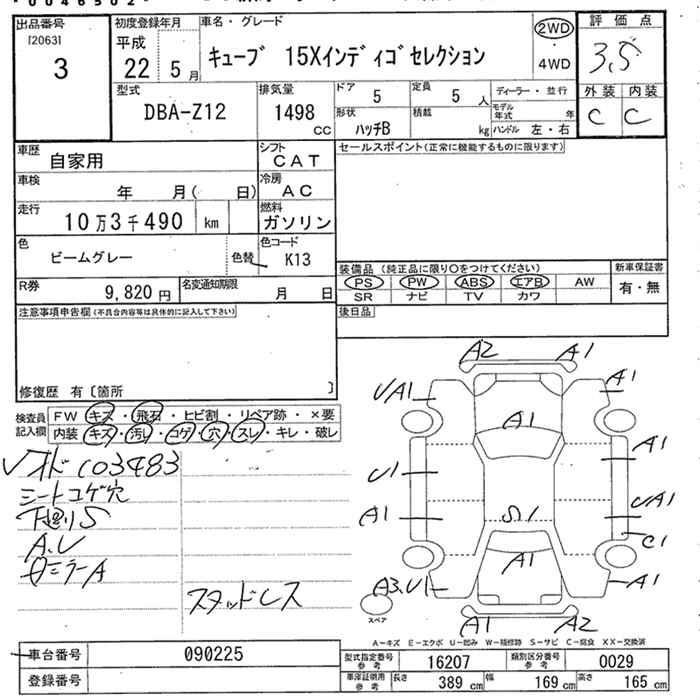 出品番号
[2063]
3
初度登録年月
平成
22 5月
車名・グレード
キューブ 15Xインディゴセレクション
2WD
・4WD
評価点
3.5
型式
DBA-Z12
排気量
1498 cc
ドア 5
定員 5 人
形状 ハッチB
積載 kg
ディーラー・並行
モデル年式 年
ハンドル 左・右
外装 内装
C C
車歴 自家用
シフト CAT
セールスポイント(正常に機能するものに限ります)
車検 年 月( 日)
冷房 AC
走行 10万3千490 km
燃料 ガソリン
色 ビームグレー 色替
色コード K13
R券 9,820円
名変通知期限 月 日
装備品 (純正品に限り〇をつけてください)
PS PW ABS エアB AW
SR ナビ TV カワ
新車保証書
有・無
注意事項申告欄(不具合内容等は具体的に記入して下さい)
後日品
修復歴 有〔箇所 〕
検査員記入欄
FW キズ・飛石・ヒビ割・リペア跡・×要
内装 キズ・汚レ・コゲ・穴・スレ・キレ・破レ
オド 103483
シートコゲ穴
下廻りS
A.U
スタッドレス
A2 A1
UA1 A1
A1
U1 A1
A1 S1 UA1
C1
A1
A3.U1 A1
スペア
A1 A2
A-キズ E-エクボ U-凹み W-補修跡 S-サビ C-腐食 XX-交換済
車台番号 090225
登録番号
型式指定番号参考 16207
類別区分番号参考 0029
車庫証明用参考
長さ 389 cm 幅 169 cm 高さ 165 cm